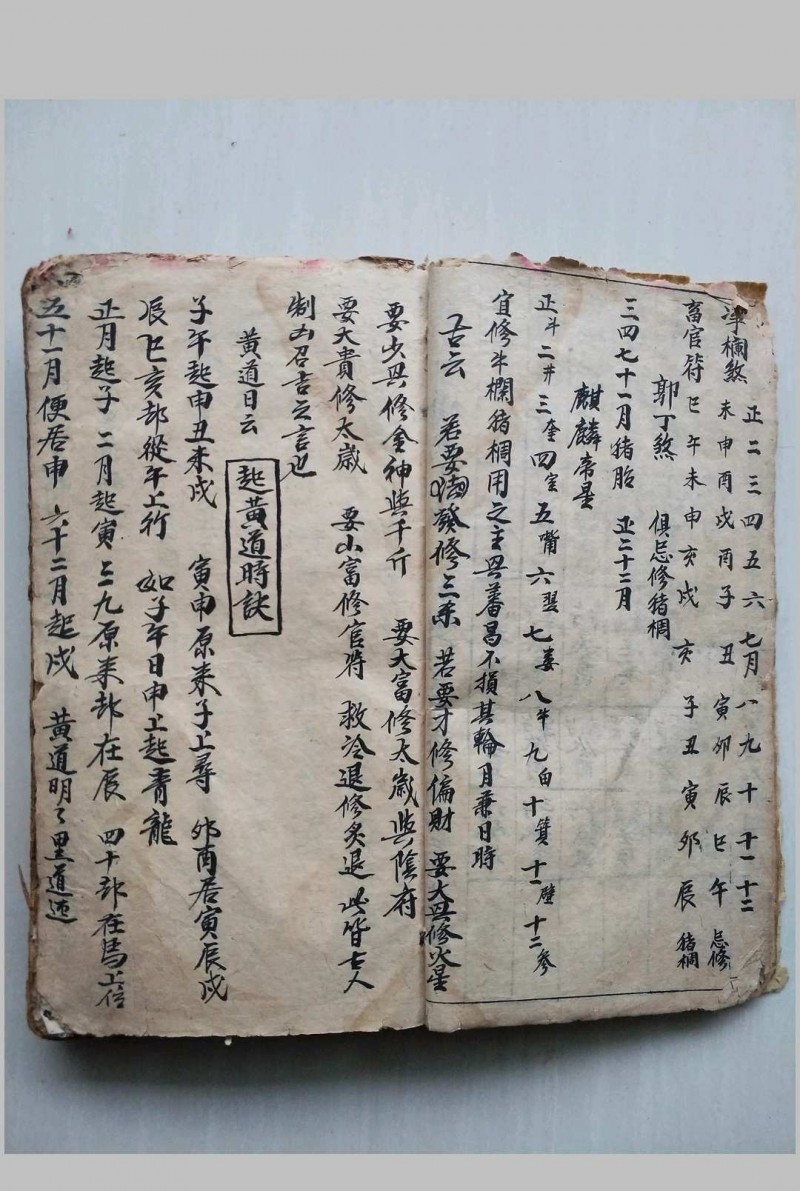 正二三四五六七月八九十十一十二
欄煞 未申酉戌丙子丑寅卯辰巳午 忌修
畜官符 巳午未申亥戌亥子丑寅卯辰 猪椆
郭丁煞 俱忌修猪椆
三四七十一月猪胎 正二十二月
麒麟帝星
正斗 二井 三奎 四室 五嘴 六翌 七婁 八牛 九白 十箕 十一壁 十二参
宜修牛欄猪椆用之主興蕃昌不損其輪月兼日時
古云 若要發修三 若要才修偏財 要大興修火星
要少興修金神與千斤 要大富修太歲與陰府
要大貴修太歲 要山富修官符 救冷退修炙退 此皆古人
制凶召吉之言也
黃道日云
起黃道時訣
子午起申丑未戌 寅申原来子上尋 卯酉居寅辰戌
辰巳亥却從午上行 如子午日申上起青龍
正月起子 二月起寅 三九原来却在辰 四十却在馬上位
五十一月便居申 六十二月起戌 黃道明々黑道